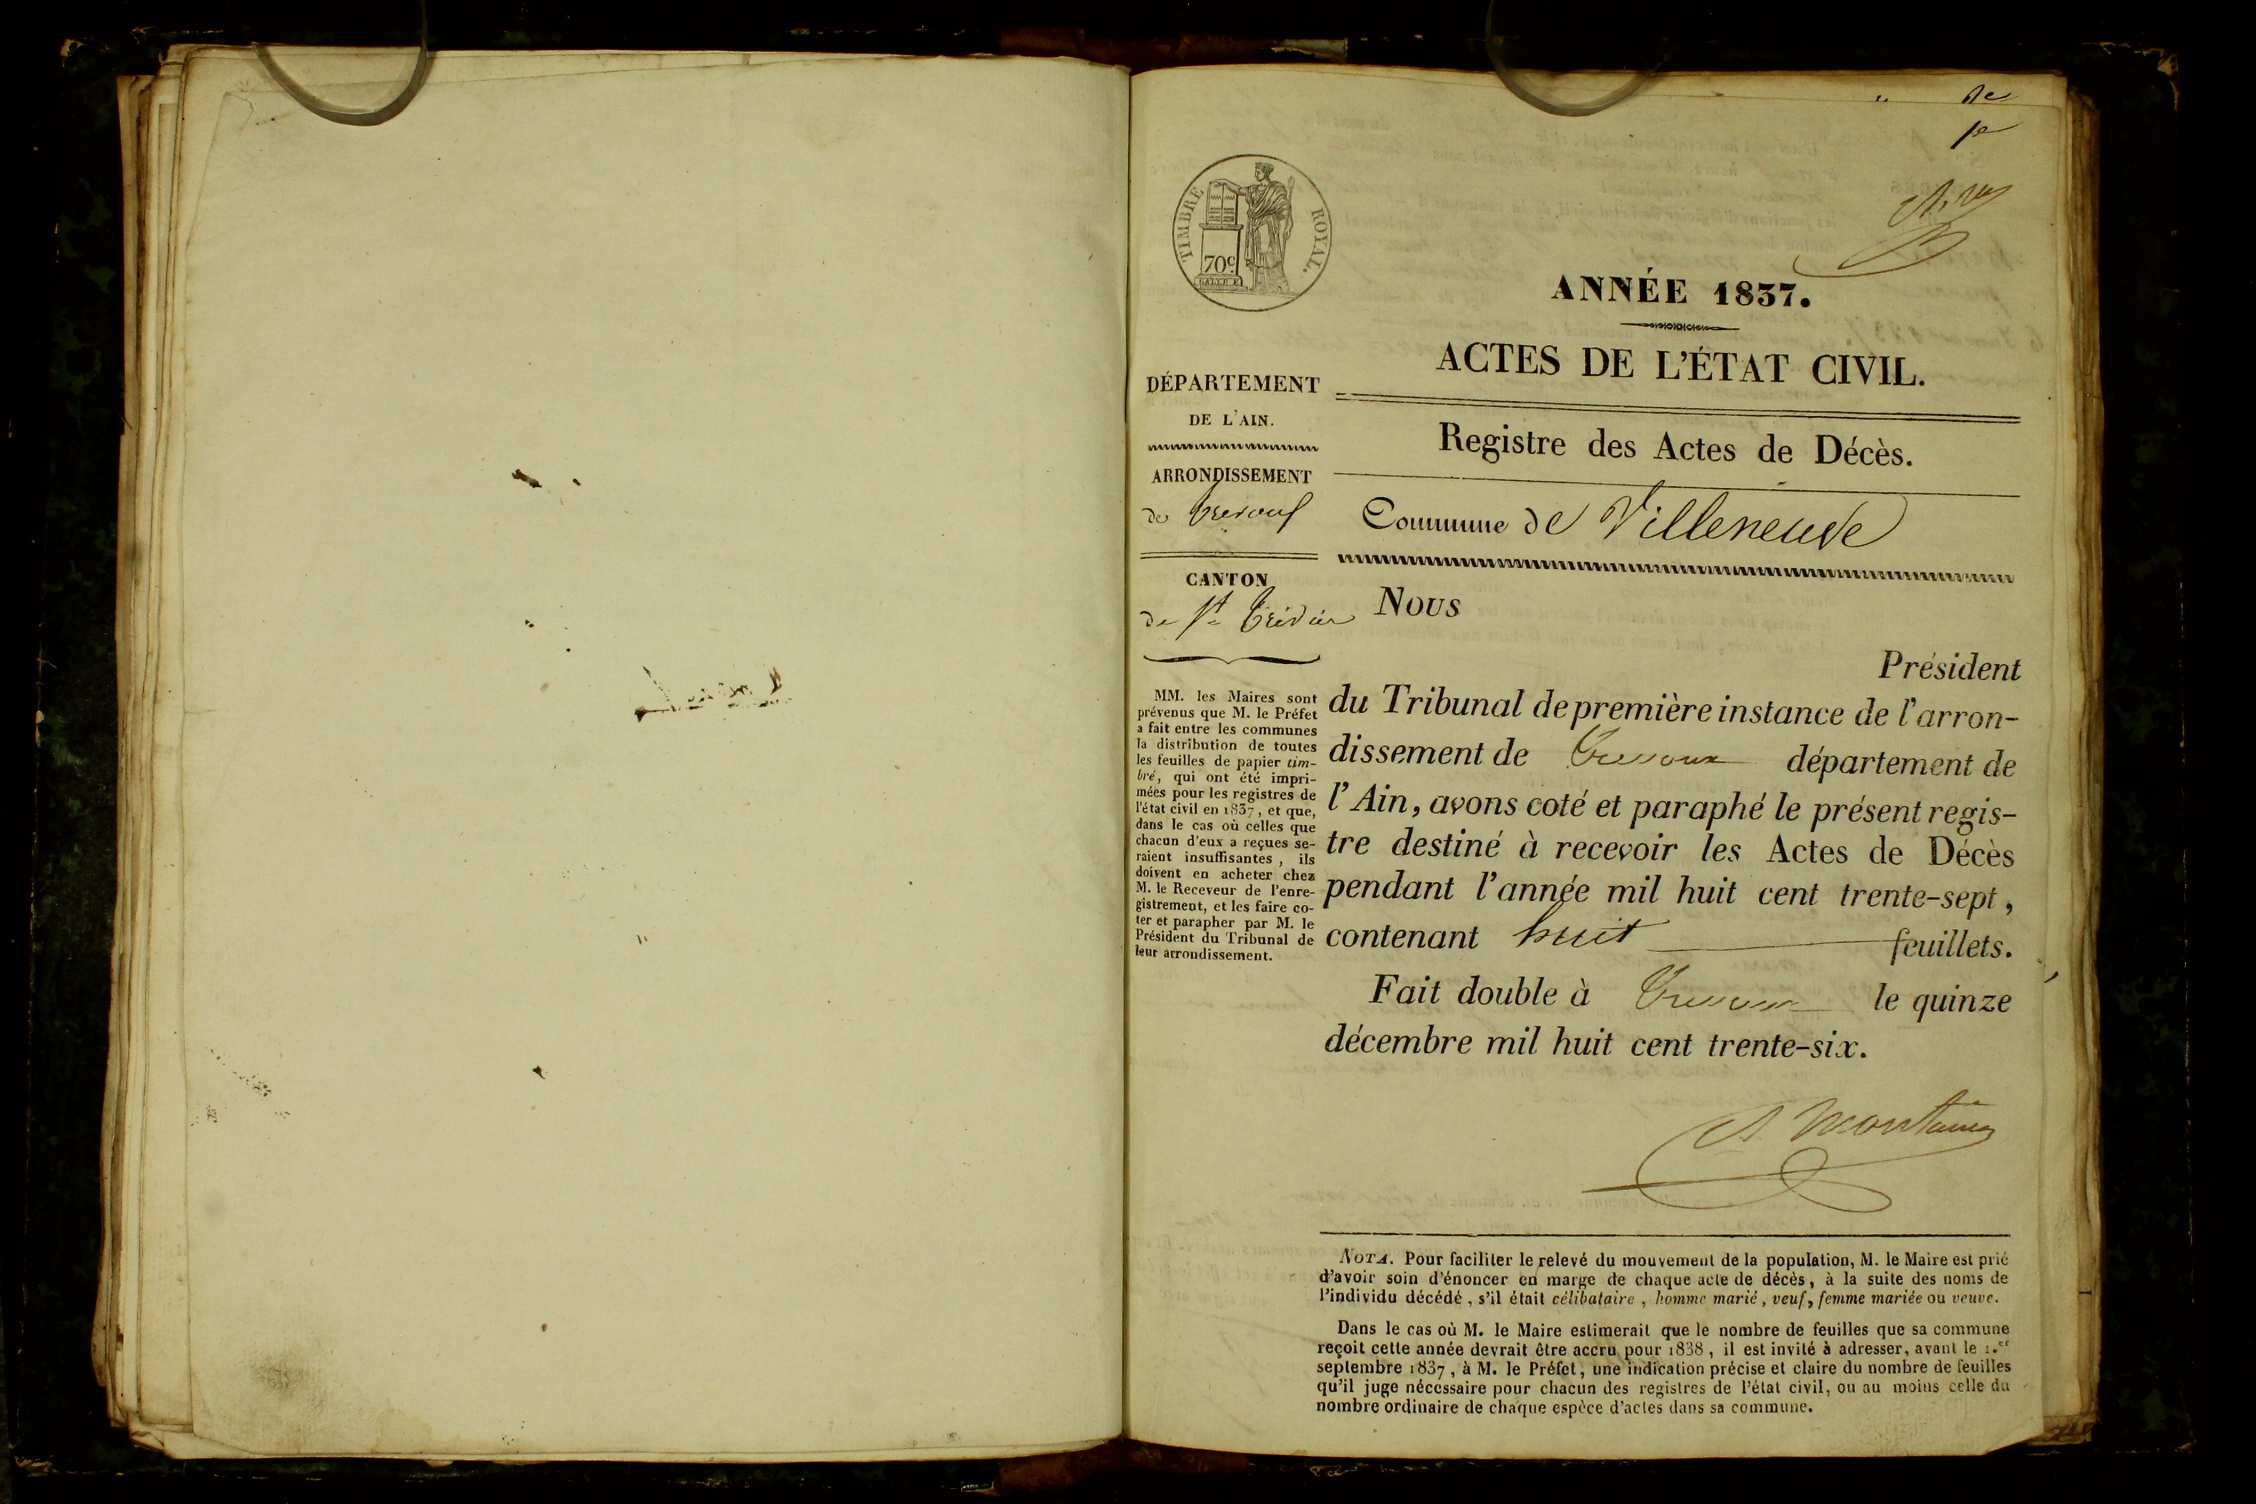 TIMBRE ROYAL.
70c
ANNÉE 1837.
ACTES DE L'ÉTAT CIVIL.
Registre des Actes de Décès.
Commune de Villeneuve
DÉPARTEMENT
DE L'AIN.
ARRONDISSEMENT
de Trevoux
CANTON
de St Trivier
MM. les Maires sont
prévenus que M. le Préfet
a fait entre les communes
la distribution de toutes
les feuilles de papier tim-
bré, qui ont été impri-
mées pour les registres de
l'état civil en 1837, et que,
dans le cas où celles que
chacun d'eux a reçues se-
raient insuffisantes, ils
doivent en acheter chez
M. le Receveur de l'enre-
gistrement, et les faire co-
ter et parapher par M. le
Président du Tribunal de
leur arrondissement.
Nous
Président
du Tribunal de première instance de l'arron-
dissement de Trevoux département de
l'Ain, avons coté et paraphé le présent regis-
tre destiné à recevoir les Actes de Décès
pendant l'année mil huit cent trente-sept,
contenant huit feuillets.
Fait double à Trevoux le quinze
décembre mil huit cent trente-six.
NOTA. Pour faciliter le relevé du mouvement de la population, M. le Maire est prié
d'avoir soin d'énoncer en marge de chaque acte de décès, à la suite des noms de
l'individu décédé, s'il était célibataire, homme marié, veuf, femme mariée ou veuve.
Dans le cas où M. le Maire estimerait que le nombre de feuilles que sa commune
reçoit cette année devrait être accru pour 1838, il est invité à adresser, avant le 1.er
septembre 1837, à M. le Préfet, une indication précise et claire du nombre de feuilles
qu'il juge nécessaire pour chacun des registres de l'état civil, ou au moins celle du
nombre ordinaire de chaque espèce d'actes dans sa commune.